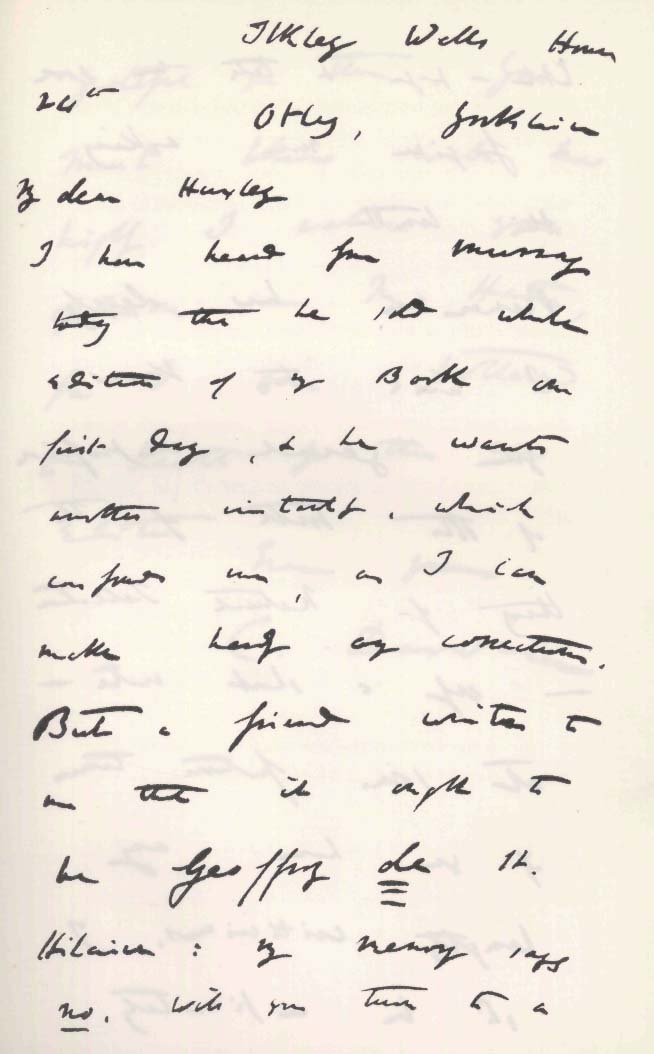 Ilkley Wells House
24th Otley, Yorkshire
My dear Huxley
I have heard from Murray
today that he sold whole
edition of my Book on
first day, & he wants
another instantly, which
confounds me, as I can
make hardly any corrections.
But a friend writes to
me that it ought to
be Geoffroy de St.
Hilaire: my memory says
no. Will you turn to a